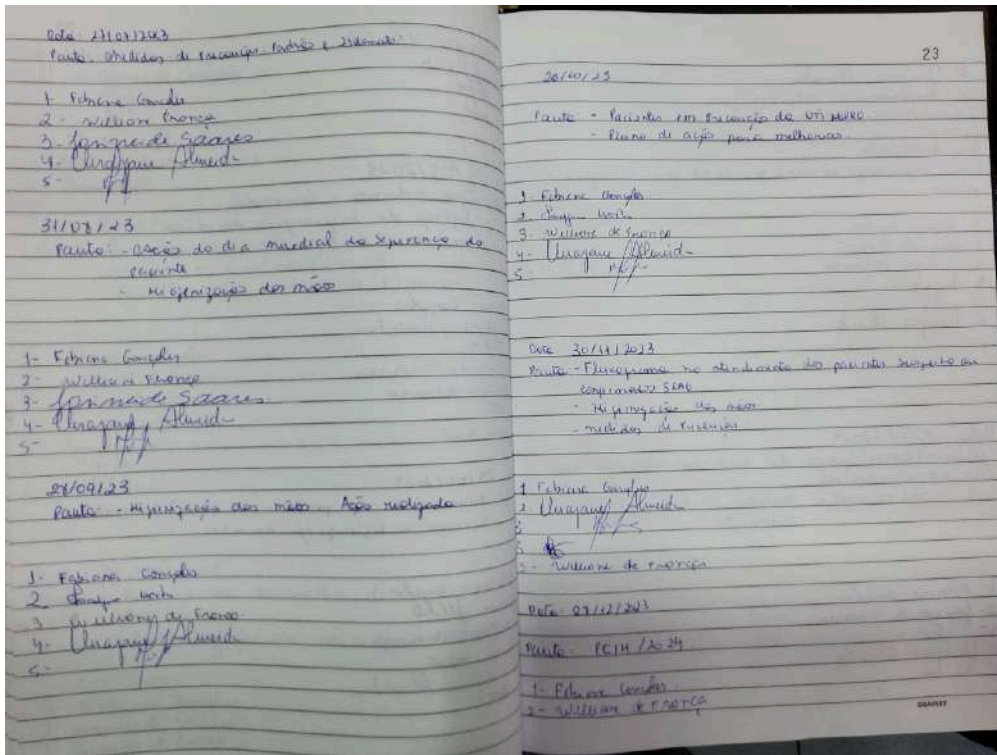 Data: 27/07/2023
Pauta: Medidas de precaução Padrão e Isolamento.
1- Fabiana Gonçalves
2- William França
3- Soares
4- Almeida
5-
31/08/23
Pauta: - Ação do dia mundial da segurança do
paciente
- Higienização das mãos
1- Fabiana Gonçalves
2- William França
3- Soares
4- Almeida
5-
28/09/23
Pauta: - Higienização das mãos. Ação realizada
1- Fabiana Gonçalves
2.
3 de França
4- Almeida
5-
23
26/10/23
Pauta - Pacientes em precaução da UTI NEURO.
- Plano de ação para melhorias.
1 Fabiana Gonçalves
2
3- Williane de França
4- Almeida
5-
Data 30/11/2023
Pauta - Fluxograma no atendimento dos pacientes suspeito ou
confirmados SRAG
- Higienização das mãos.
- medidas de precaução
1 Fabiana Gonçalves
2 Almeida
3
5- Williane de França
Data: 27/12/2023
Pauta: PCIH / 2024
1- Fabiana Gonçalves
2- Williane de França